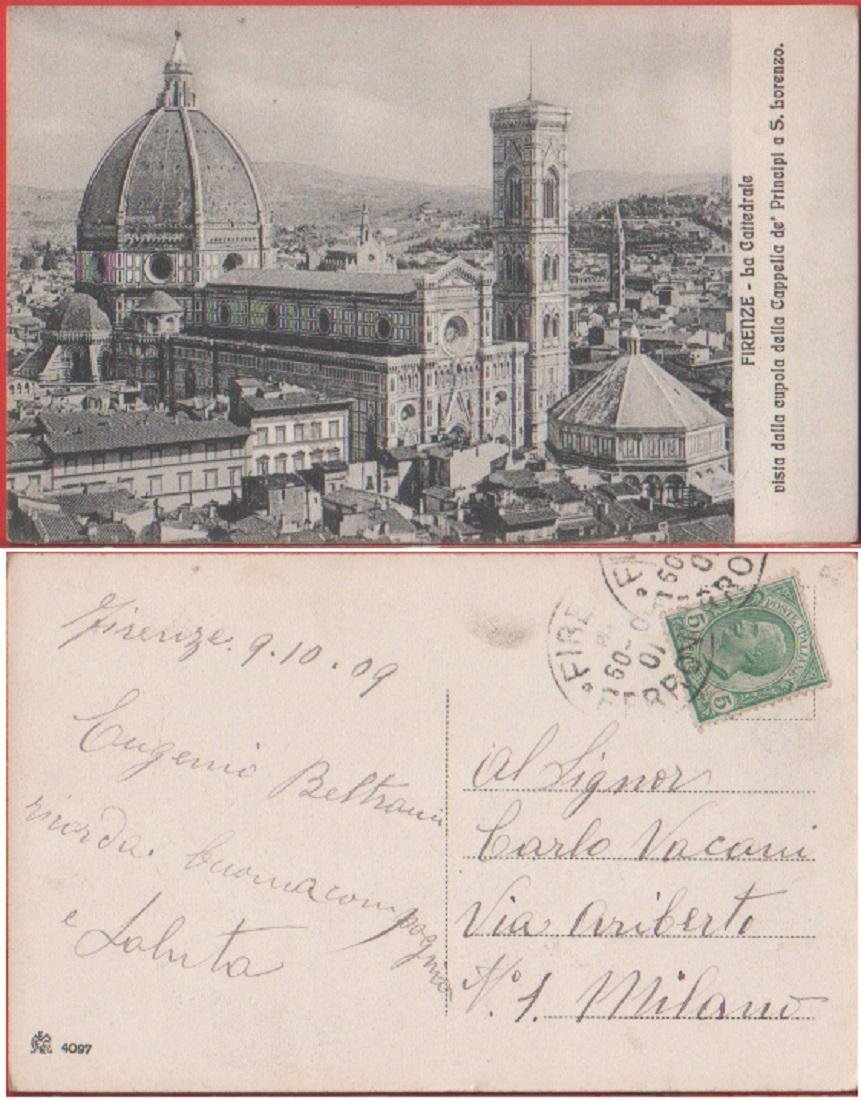 FIRENZE - La Cattedrale
vista dalla cupola della Cappella de' Principi a S. Lorenzo.
Firenze. 9.10.09
Eugenio Beltrami
ricorda. buona compagnia
e Saluta
4097
FIRE
FERRO
5 POSTE ITALIANE 5
Al Signor
Carlo Vacani
Via Ariberto
N.° 1. Milano